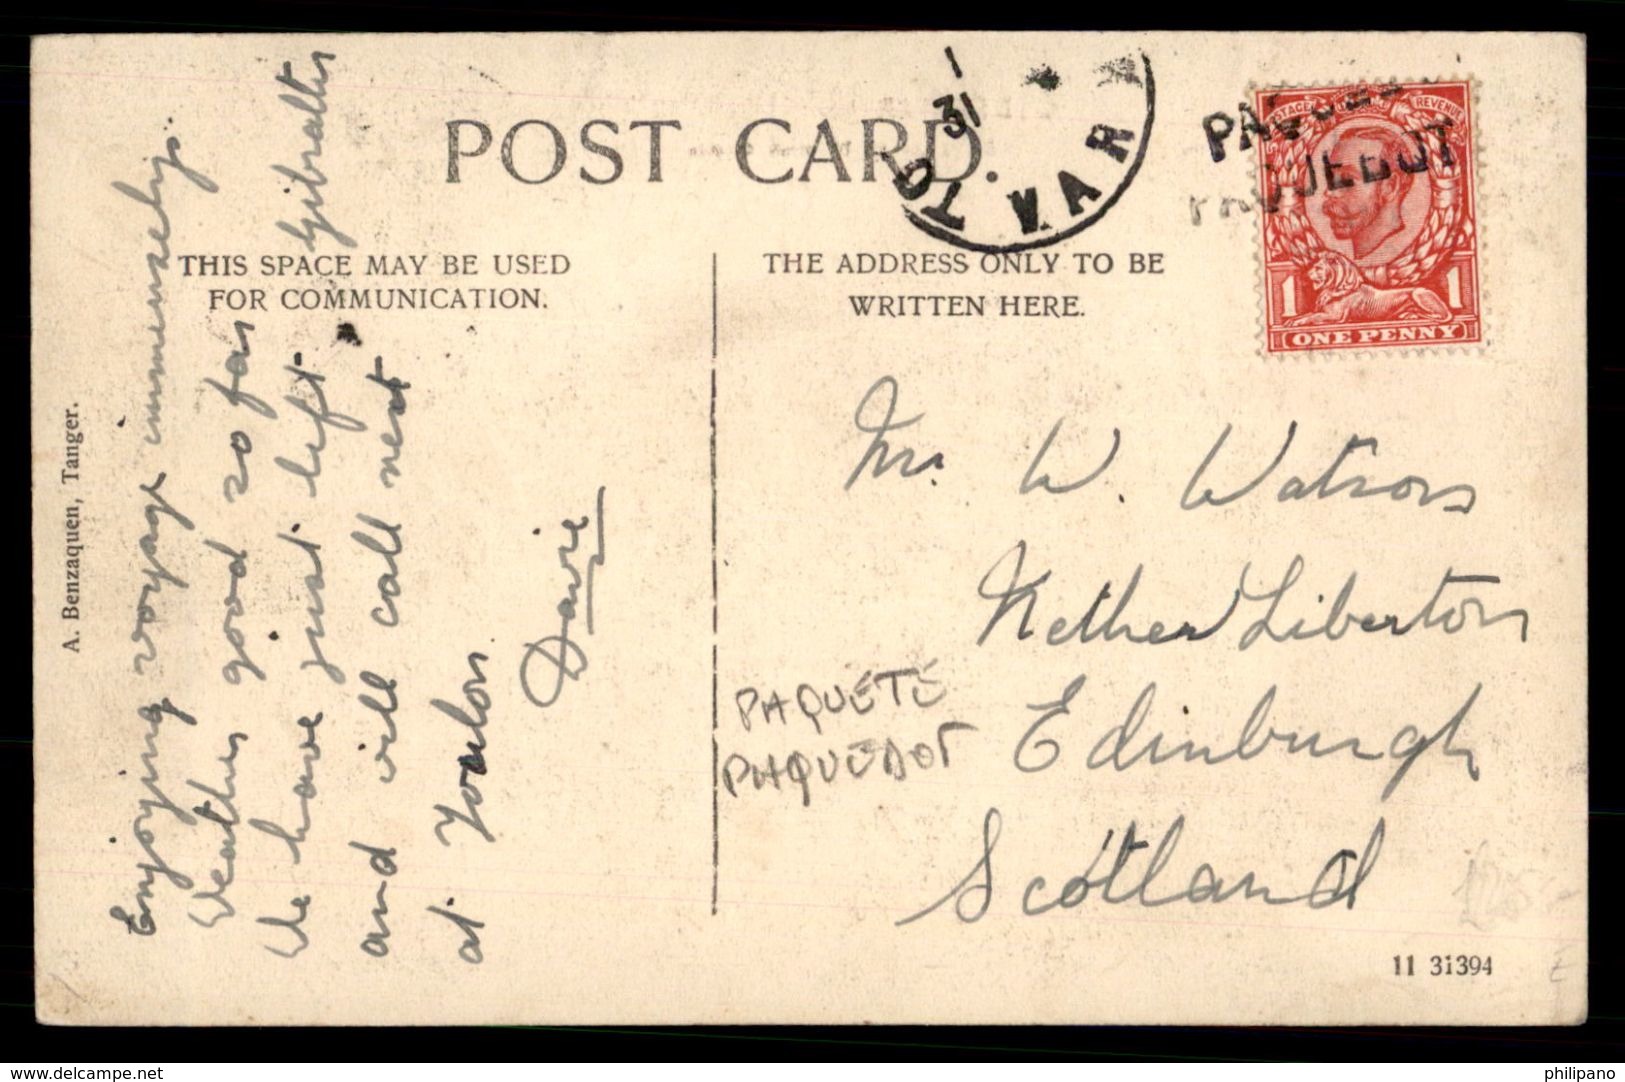 POST CARD.
THIS SPACE MAY BE USED
FOR COMMUNICATION.
THE ADDRESS ONLY TO BE
WRITTEN HERE.
A. Benzaquen, Tanger.
Enjoying voyage immensely.
Weather good so far
We have just left Gibralter
and will call next
at Toulon
Davie
Mr. W. Watson
Nether Liberton
Edinburgh
Scotland
PAQUÉTÉ
PAQUÉBOT
PAQUEBOT
31
TO
VAR
POSTAGE REVENUE
1 1
ONE PENNY
11 31394
www.delcampe.net
philipano